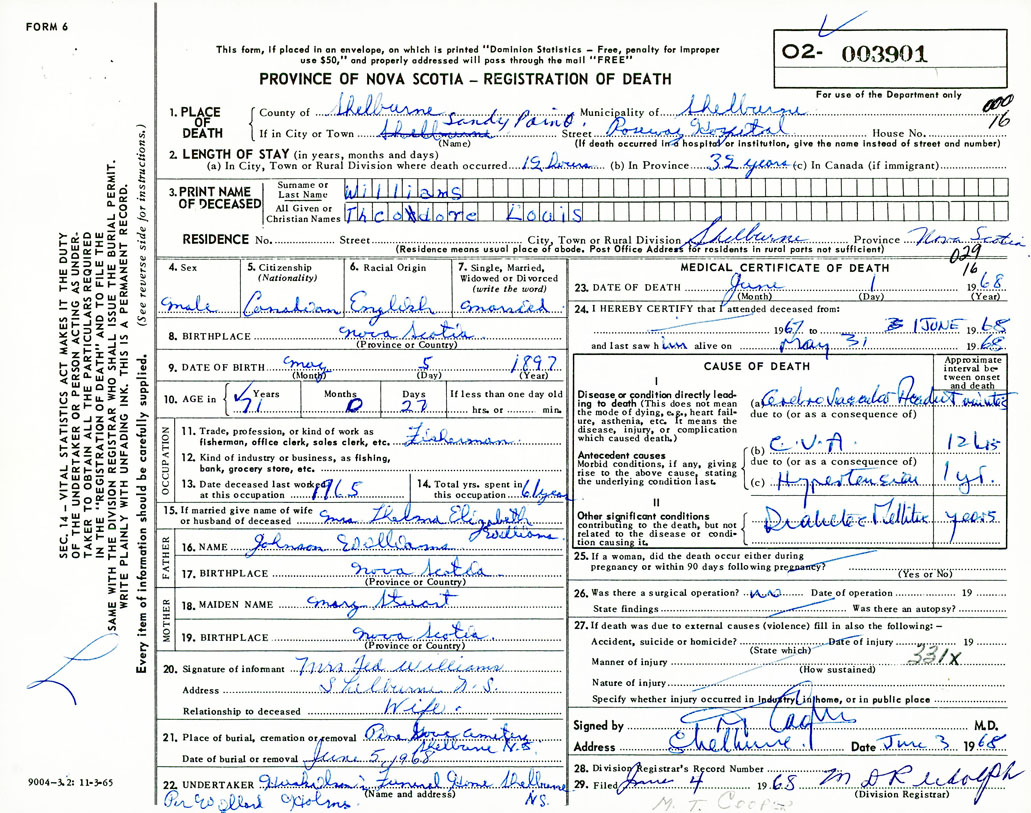 FORM 6
This form, if placed in an envelope, on which is printed "Dominion Statistics – Free, penalty for improper
use $50," and properly addressed will pass through the mail "FREE"
PROVINCE OF NOVA SCOTIA – REGISTRATION OF DEATH
02- 003901
For use of the Department only
000
16
1. PLACE OF DEATH
County of Shelburne Municipality of Shelburne
Sandy Point
If in City or Town Shelburne Street Roseway Hospital House No.
(Name) (If death occurred in a hospital or institution, give the name instead of street and number)
2. LENGTH OF STAY (in years, months and days)
(a) In City, Town or Rural Division where death occurred (b) In Province years (c) In Canada (if immigrant)
3. PRINT NAME OF DECEASED
Surname or Last Name Williams
All Given or Christian Names Theodore Louis
RESIDENCE No. Street City, Town or Rural Division Shelburne Province Nova Scotia
(Residence means usual place of abode. Post Office Address for residents in rural parts not sufficient)
029
16
4. Sex male
5. Citizenship (Nationality) Canadian
6. Racial Origin English
7. Single, Married, Widowed or Divorced (write the word) married
8. BIRTHPLACE Nova Scotia
(Province or Country)
9. DATE OF BIRTH May 5 1897
(Month) (Day) (Year)
10. AGE in Years 71 Months 0 Days 27 If less than one day old hrs. or min.
OCCUPATION
11. Trade, profession, or kind of work as
fisherman, office clerk, sales clerk, etc. Fisherman
12. Kind of industry or business, as fishing,
bank, grocery store, etc.
13. Date deceased last worked at this occupation 1965
14. Total yrs. spent in this occupation 61 years
15. If married give name of wife
or husband of deceased Mrs. Thelma Elizabeth
Williams
FATHER
16. NAME Johnson Williams
17. BIRTHPLACE Nova Scotia
(Province or Country)
MOTHER
18. MAIDEN NAME Mary Stuart
19. BIRTHPLACE Nova Scotia
(Province or Country)
20. Signature of informant Mrs Ted Williams
Address Shelburne N.S.
Relationship to deceased Wife.
21. Place of burial, cremation or removal Pine Grove Cemetery
Shelburne N.S.
Date of burial or removal June 5, 1968
22. UNDERTAKER Funeral Home Shelburne
(Name and address) N.S.
Per
MEDICAL CERTIFICATE OF DEATH
23. DATE OF DEATH June 1 1968
(Month) (Day) (Year)
24. I HEREBY CERTIFY that I attended deceased from:
1967 to 1 JUNE 1968
and last saw him alive on May 31 1968
CAUSE OF DEATH
Approximate interval between onset and death
I
Disease or condition directly leading to death (This does not mean the mode of dying, e.g., heart failure, asthenia, etc. It means the disease, injury, or complication which caused death.)
(a) minutes
due to (or as a consequence of)
Antecedent causes
Morbid conditions, if any, giving rise to the above cause, stating the underlying condition last.
(b) C.V.A. 12 hrs
due to (or as a consequence of)
(c) Hypertension 1 yr.
II
Other significant conditions
contributing to the death, but not related to the disease or condition causing it.
Diabetes Mellitus years
25. If a woman, did the death occur either during
pregnancy or within 90 days following pregnancy?
(Yes or No)
26. Was there a surgical operation? no Date of operation 19
State findings Was there an autopsy?
27. If death was due to external causes (violence) fill in also the following: –
Accident, suicide or homicide? Date of injury 19
(State which)
331X
Manner of injury
(How sustained)
Nature of injury
Specify whether injury occurred in Industry, in home, or in public place
Signed by M.D.
Address Shelburne. Date June 3 1968
28. Division Registrar's Record Number
29. Filed June 4 1968 M D Rudolph
(Division Registrar)
M. T. COOPER
SEC. 14 – VITAL STATISTICS ACT MAKES IT THE DUTY
OF THE UNDERTAKER OR PERSON ACTING AS UNDER-
TAKER TO OBTAIN ALL THE PARTICULARS REQUIRED
IN THE "REGISTRATION OF DEATH" AND TO FILE THE
SAME WITH THE DIVISION REGISTRAR WHO SHALL ISSUE THE BURIAL PERMIT.
WRITE PLAINLY WITH UNFADING INK. THIS IS A PERMANENT RECORD.
Every item of information should be carefully supplied. (See reverse side for instructions.)
9004-3.2: 11-3-65